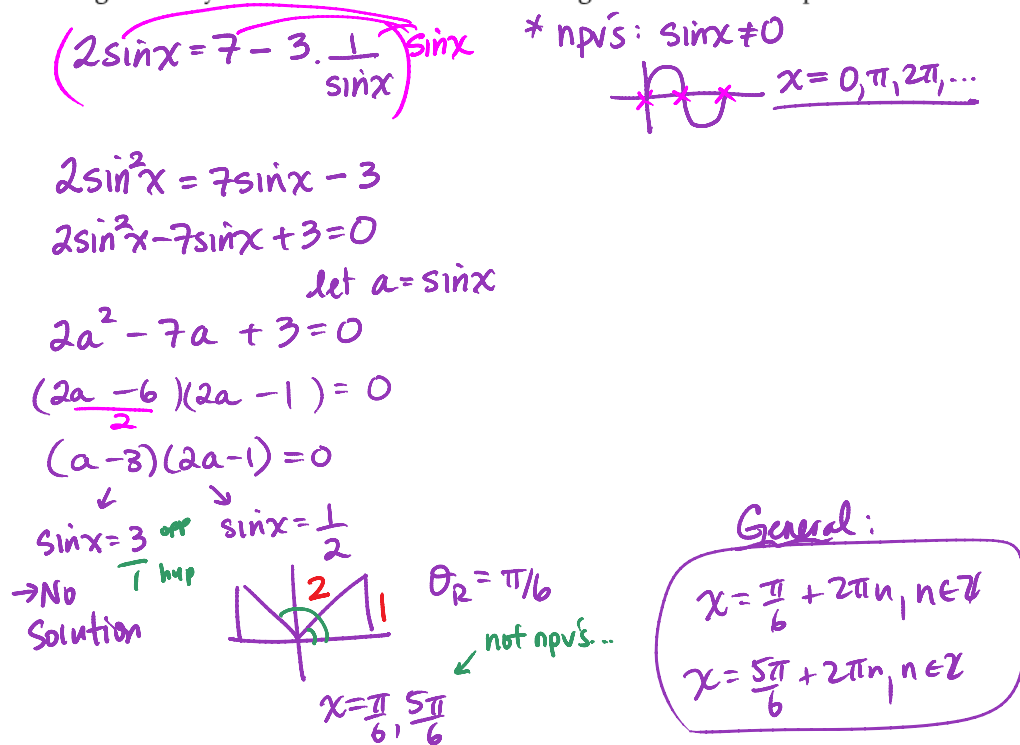 (2sinx = 7 - 3 · 1/sinx) sinx
* npv's: sinx ≠ 0
x = 0, π, 2π, ...
2sin²x = 7sinx - 3
2sin²x - 7sinx + 3 = 0
let a = sinx
2a² - 7a + 3 = 0
(2a - 6)(2a - 1) = 0
2
(a - 3)(2a - 1) = 0
sinx = 3/1 opp hyp
sinx = 1/2
→ No
Solution
2
1
θR = π/6
not npv's...
x = π/6, 5π/6
General:
x = π/6 + 2πn, n ∈ Z
x = 5π/6 + 2πn, n ∈ Z